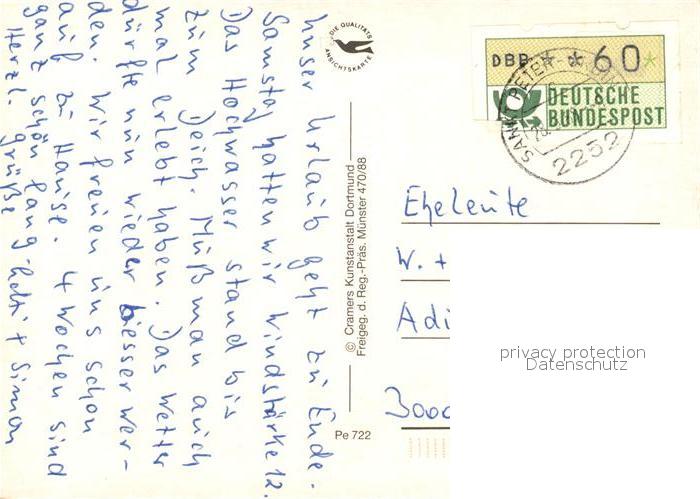 Unser Urlaub geht zu Ende.
Samstag hatten wir Windstärke 12.
Das Hochwasser stand bis
zum Deich. Muß man auch
mal erlebt haben. Das Wetter
dürfte nun wieder besser wer-
den. Wir freuen uns schon
auf zu Hause. 4 Wochen sind
ganz schön lang.
Herzl. Grüße + Simon
DIE QUALITÄTS
ANSICHTSKARTE
© Cramers Kunstanstalt Dortmund
Freigeg. d. Reg.-Präs. Münster 470/88
Pe 722
DBP * * 60 *
DEUTSCHE
BUNDESPOST
SANKT PETER
28.
2252
Eheleute
W. +
Adi
3000
privacy protection
Datenschutz